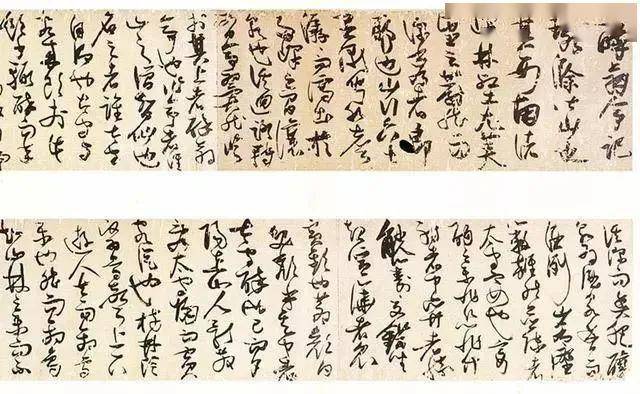 醉翁亭記
環滁皆山也
其西南諸
峰林壑尤美
望之蔚然而
深秀者瑯
琊也山行六七
里漸聞水聲
潺潺而瀉出於
兩峰之間者釀
泉也峰回路轉
有亭翼然臨
於其上者醉翁
亭也作亭者誰
山之僧智仙也
名之者誰太守
自謂也太守與
客來飲於此
飲少輒醉而年
溪深而魚肥釀
泉為酒泉香而
酒洌山肴野
蔌雜然而前陳者
太守宴也宴
酣之樂非絲非竹
射者中弈者勝
觥籌交錯坐
起而喧嘩者眾
賓歡也蒼顏白
髮頹乎其中者
太守醉也已而夕
陽在山人影散
亂太守歸而賓
客從也樹林陰
翳鳴聲上下
遊人去而禽鳥
樂也然而禽鳥
知山林之樂而不